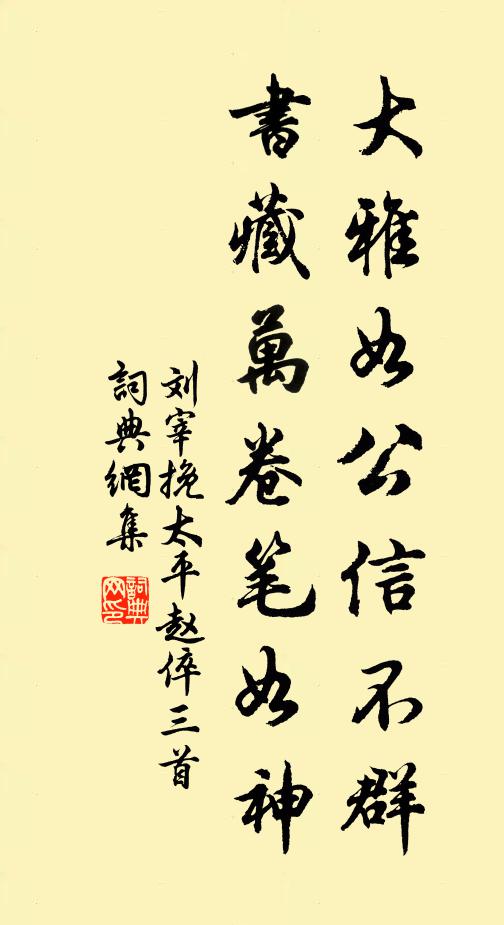 大雅如公信不群
書藏萬卷笔如神
刘宰挽太平赵倅三首
詞典網集
詞典網印